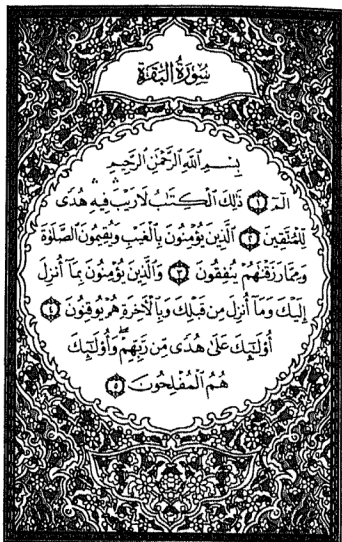 سُورَةُ البَقَرَة
بِسْمِ ٱللَّهِ ٱلرَّحْمَٰنِ ٱلرَّحِيمِ
الٓمٓ ۝١ ذَٰلِكَ ٱلْكِتَٰبُ لَا رَيْبَ ۛ فِيهِ ۛ هُدًى
لِّلْمُتَّقِينَ ۝٢ ٱلَّذِينَ يُؤْمِنُونَ بِٱلْغَيْبِ وَيُقِيمُونَ ٱلصَّلَوٰةَ
وَمِمَّا رَزَقْنَٰهُمْ يُنفِقُونَ ۝٣ وَٱلَّذِينَ يُؤْمِنُونَ بِمَآ أُنزِلَ
إِلَيْكَ وَمَآ أُنزِلَ مِن قَبْلِكَ وَبِٱلْءَاخِرَةِ هُمْ يُوقِنُونَ ۝٤
أُو۟لَٰٓئِكَ عَلَىٰ هُدًى مِّن رَّبِّهِمْ ۖ وَأُو۟لَٰٓئِكَ
هُمُ ٱلْمُفْلِحُونَ ۝٥